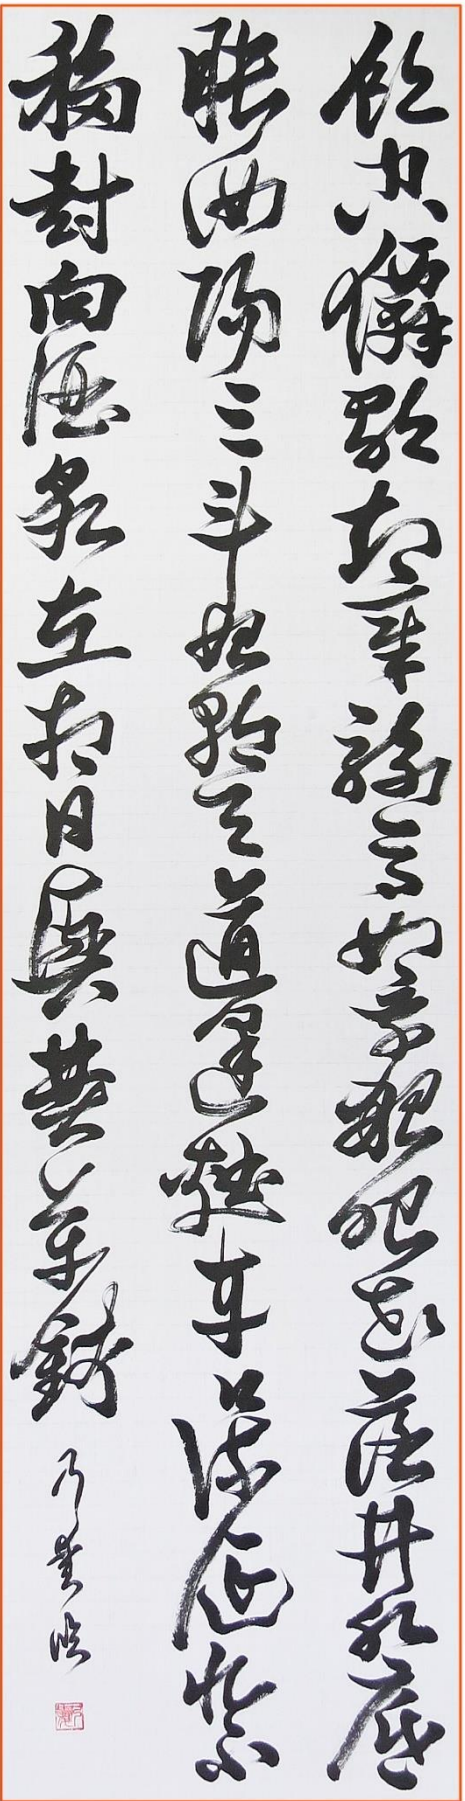 飲中八僊歌知章騎馬如乗船眼花落井水底
眠汝陽三斗始朝天道逢麹車口流涎恨不
移封向酒泉左相日興費萬銭
乃臨